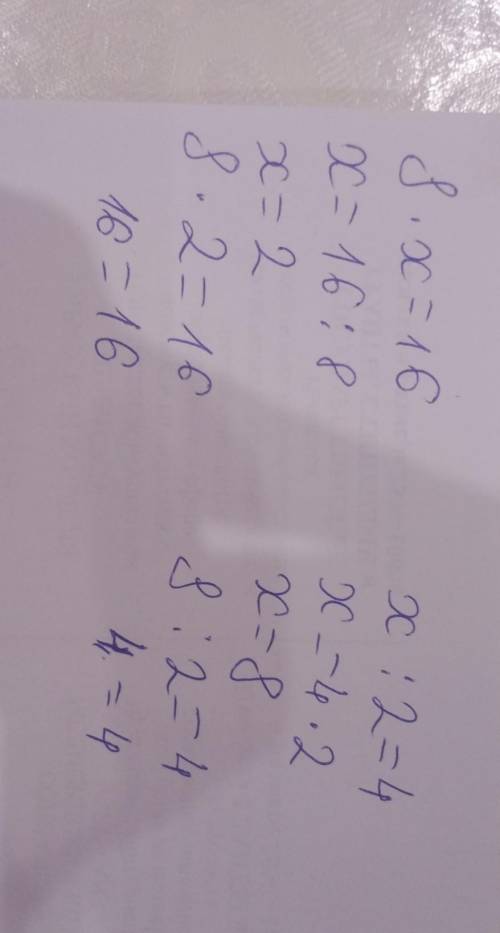 8 · x = 16
x = 16 : 8
x = 2
8 · 2 = 16
16 = 16
x : 2 = 4
x = 4 · 2
x = 8
8 : 2 = 4
4 = 4